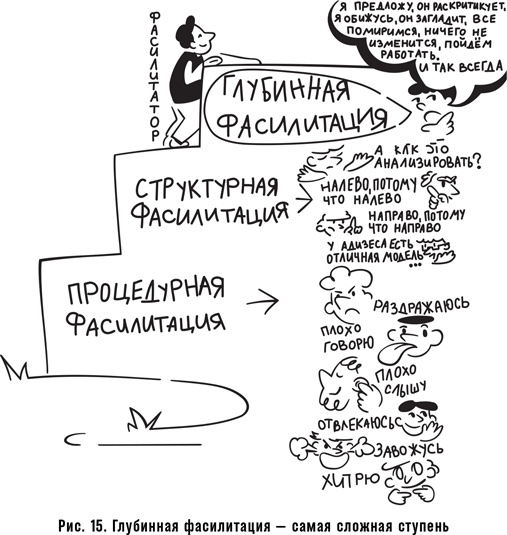 Я ПРЕДЛОЖУ, ОН РАСКРИТИКУЕТ,
Я ОБИЖУСЬ, ОН ЗАГЛАДИТ, ВСЕ
ПОМИРИМСЯ, НИЧЕГО НЕ
ИЗМЕНИТСЯ, ПОЙДЁМ
РАБОТАТЬ.
И ТАК ВСЕГДА
ФАСИЛИТАТОР
ГЛУБИННАЯ
ФАСИЛИТАЦИЯ
А КАК ЭТО
АНАЛИЗИРОВАТЬ?
СТРУКТУРНАЯ
ФАСИЛИТАЦИЯ
НАЛЕВО, ПОТОМУ
ЧТО НАЛЕВО
НАПРАВО, ПОТОМУ
ЧТО НАПРАВО
У АДИЗЕСА ЕСТЬ
ОТЛИЧНАЯ МОДЕЛЬ
...
ПРОЦЕДУРНАЯ
ФАСИЛИТАЦИЯ
РАЗДРАЖАЮСЬ
ПЛОХО
ГОВОРЮ
ПЛОХО
СЛЫШУ
ОТВЛЕКАЮСЬ
ЗАВОЖУСЬ
ХИТРЮ
Рис. 15. Глубинная фасилитация — самая сложная ступень